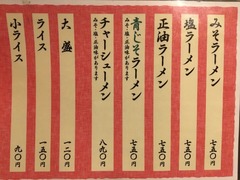 みそラーメン 七五〇円
塩ラーメン 七五〇円
正油ラーメン 七五〇円
青じそラーメン 七五〇円
みそ・塩・正油味があります
チャーシューメン 八九〇円
みそ・塩・正油味があります
大盛 一二〇円
ライス 一五〇円
小ライス 九〇円